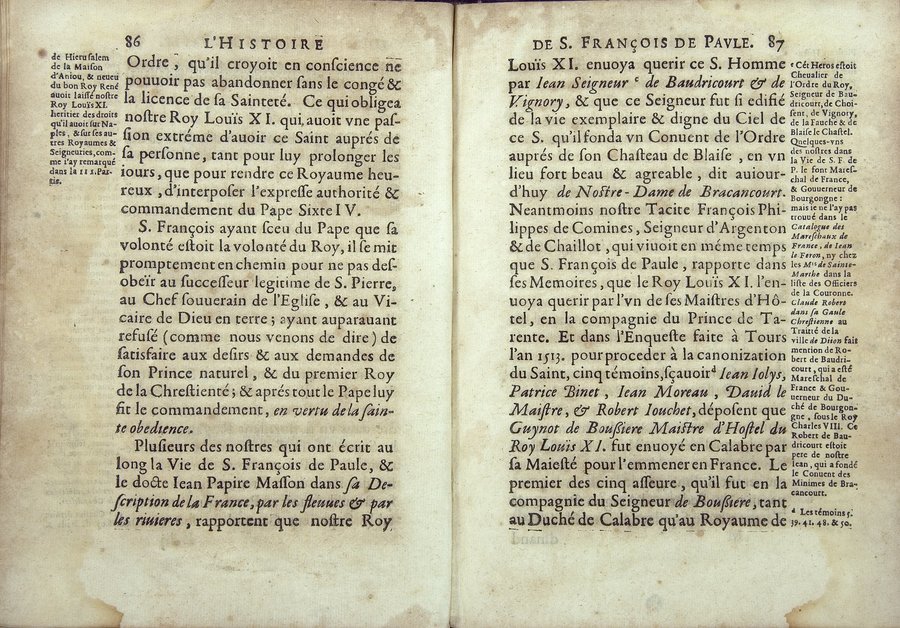 86 L'HISTOIRE
de Hierusalem
de la Maison
d'Aniou, & neueu
du bon Roy René
auoit laissé nostre
Roy Louïs XI.
heritier des droits
qu'il auoit sur Na-
ples, & sur ses au-
tres Royaumes &
Seigneuries, com-
me i'ay remarqué
dans la III. Par-
tie.
Ordre, qu'il croyoit en conscience ne
pouuoir pas abandonner sans le congé &
la licence de sa Sainteté. Ce qui obligea
nostre Roy Louïs XI. qui auoit vne pas-
sion extréme d'auoir ce Saint auprés de
sa personne, tant pour luy prolonger les
iours, que pour rendre ce Royaume heu-
reux, d'interposer l'expresse authorité &
commandement du Pape Sixte IV.
S. François ayant sceu du Pape que sa
volonté estoit la volonté du Roy, il se mit
promptement en chemin pour ne pas des-
obeïr au successeur legitime de S. Pierre,
au Chef souuerain de l'Eglise, & au Vi-
caire de Dieu en terre; ayant auparauant
refusé (comme nous venons de dire) de
satisfaire aux desirs & aux demandes de
son Prince naturel, & du premier Roy
de la Chrestienté; & aprés tout le Pape luy
fit le commandement, en vertu de la sain-
te obedience.
Plusieurs des nostres qui ont écrit au
long la Vie de S. François de Paule, &
le docte Iean Papire Masson dans sa De-
scription de la France, par les fleuues & par
les riuieres, rapportent que nostre Roy
DE S. FRANÇOIS DE PAVLE. 87
Louïs XI. enuoya querir ce S. Homme
par Iean Seigneur c de Baudricourt & de
Vignory, & que ce Seigneur fut si edifié
de la vie exemplaire & digne du Ciel de
ce S. qu'il fonda vn Conuent de l'Ordre
auprés de son Chasteau de Blaise, en vn
lieu fort beau & agreable, dit auiour-
d'huy de Nostre-Dame de Bracancourt.
Neantmoins nostre Tacite François Phi-
lippes de Comines, Seigneur d'Argenton
& de Chaillot, qui viuoit en méme temps
que S. François de Paule, rapporte dans
ses Memoires, que le Roy Louïs XI. l'en-
uoya querir par l'vn de ses Maistres d'Hô-
tel, en la compagnie du Prince de Ta-
rente. Et dans l'Enqueste faite à Tours
l'an 1513. pour proceder à la canonization
du Saint, cinq témoins, sçauoir d Iean Iolys,
Patrice Binet, Iean Moreau, Dauid le
Maistre, & Robert Iouchet, déposent que
Guynot de Boussiere Maistre d'Hostel du
Roy Louïs XI. fut enuoyé en Calabre par
sa Maiesté pour l'emmener en France. Le
premier des cinq asseure, qu'il fut en la
compagnie du Seigneur de Boussiere, tant
au Duché de Calabre qu'au Royaume de
c Cét Heros estoit
Cheualier de
l'Ordre du Roy,
Seigneur de Bau-
dricourt, de Choi-
sent, de Vignory,
de la Fauche & de
Blaise le Chastel.
Quelques-vns
des nostres dans
la Vie de S. F. de
P. le font Mares-
chal de France,
& Gouuerneur de
Bourgongne:
mais ie ne l'ay pas
trouué dans le
Catalogue des
Mareschaux de
France, de Iean
le Feron, ny chez
les Mrs de Sainte-
Marthe dans la
liste des Officiers
de la Couronne.
Claude Robert
dans sa Gaule
Chrestienne au
Traité de la
ville de Diion fait
mention de Ro-
bert de Baudri-
court, qui a esté
Mareschal de
France & Gou-
uerneur du Du-
ché de Bourgon-
gne, sous le Roy
Charles VIII. Ce
Robert de Bau-
dricourt estoit
pere de nostre
Iean, qui a fondé
le Conuent des
Minimes de Bra-
cancourt.
d Les témoins 5.
39. 41. 48. & 50.